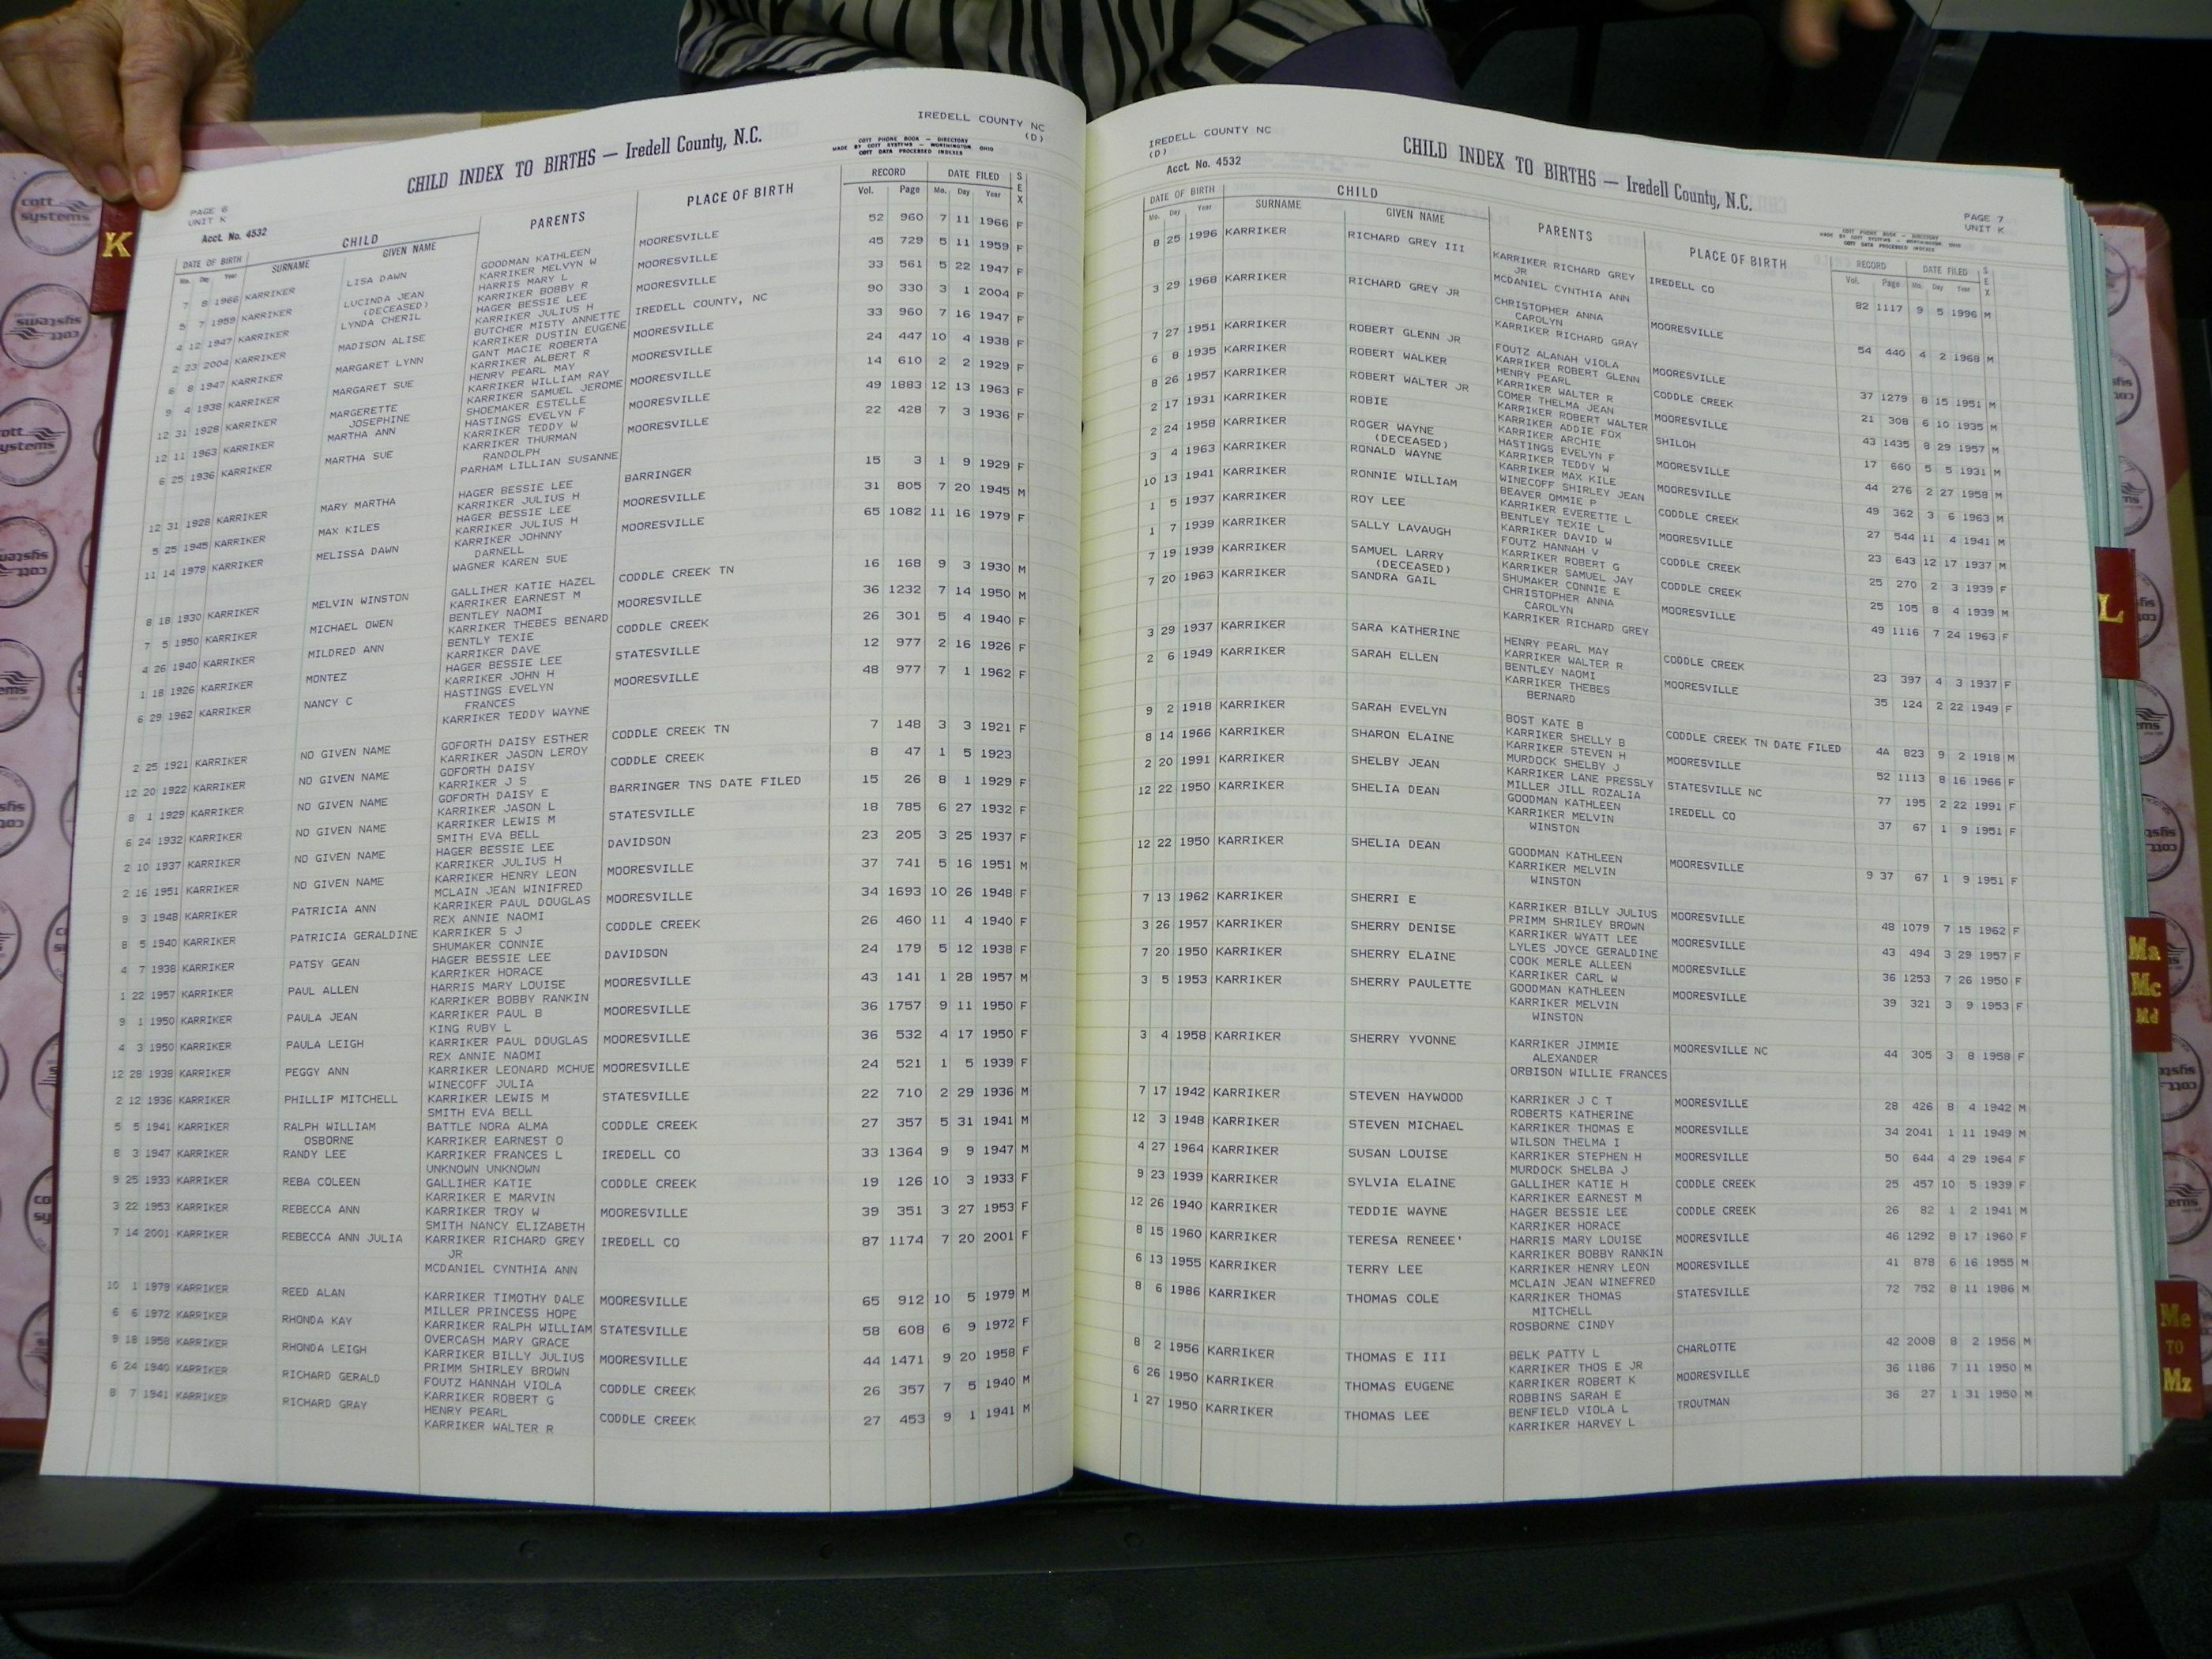 IREDELL COUNTY NC
(D)
CHILD INDEX TO BIRTHS — Iredell County, N.C.
COTT PHONE BOOK — DIRECTORY
MADE BY COTT SYSTEMS — WORTHINGTON OHIO
COTT DATA PROCESSED INDEXES
PAGE 6
UNIT K
Acct. No. 4532
DATE OF BIRTH CHILD PARENTS PLACE OF BIRTH RECORD DATE FILED SEX
Mo. Day Year SURNAME GIVEN NAME Vol. Page Mo. Day Year
7 8 1966 KARRIKER LISA DAWN GOODMAN KATHLEEN MOORESVILLE 52 960 7 11 1966 F
KARRIKER MELVYN W
5 7 1959 KARRIKER LUCINDA JEAN HARRIS MARY L MOORESVILLE 45 729 5 11 1959 F
(DECEASED) KARRIKER BOBBY R
4 12 1947 KARRIKER LYNDA CHERIL HAGER BESSIE LEE MOORESVILLE 33 561 5 22 1947 F
KARRIKER JULIUS H
2 23 2004 KARRIKER MADISON ALISE BUTCHER MISTY ANNETTE IREDELL COUNTY, NC 90 330 3 1 2004 F
KARRIKER DUSTIN EUGENE
6 8 1947 KARRIKER MARGARET LYNN GANT MACIE ROBERTA MOORESVILLE 33 960 7 16 1947 F
KARRIKER ALBERT R
9 4 1938 KARRIKER MARGARET SUE HENRY PEARL MAY MOORESVILLE 24 447 10 4 1938 F
KARRIKER WILLIAM RAY
12 31 1928 KARRIKER MARGERETTE KARRIKER SAMUEL JEROME MOORESVILLE 14 610 2 2 1929 F
JOSEPHINE SHOEMAKER ESTELLE
12 11 1963 KARRIKER MARTHA ANN HASTINGS EVELYN F MOORESVILLE 49 1883 12 13 1963 F
KARRIKER TEDDY W
6 25 1936 KARRIKER MARTHA SUE KARRIKER THURMAN MOORESVILLE 22 428 7 3 1936 F
RANDOLPH
PARHAM LILLIAN SUSANNE
12 31 1928 KARRIKER MARY MARTHA HAGER BESSIE LEE BARRINGER 15 3 1 9 1929 F
KARRIKER JULIUS H
5 25 1945 KARRIKER MAX KILES HAGER BESSIE LEE MOORESVILLE 31 805 7 20 1945 M
KARRIKER JULIUS H
11 14 1979 KARRIKER MELISSA DAWN KARRIKER JOHNNY MOORESVILLE 65 1082 11 16 1979 F
DARNELL
WAGNER KAREN SUE
8 18 1930 KARRIKER MELVIN WINSTON GALLIHER KATIE HAZEL CODDLE CREEK TN 16 168 9 3 1930 M
KARRIKER EARNEST M
7 5 1950 KARRIKER MICHAEL OWEN BENTLEY NAOMI MOORESVILLE 36 1232 7 14 1950 M
KARRIKER THEBES BENARD
4 26 1940 KARRIKER MILDRED ANN BENTLY TEXIE CODDLE CREEK 26 301 5 4 1940 F
KARRIKER DAVE
1 18 1926 KARRIKER MONTEZ HAGER BESSIE LEE STATESVILLE 12 977 2 16 1926 F
KARRIKER JOHN H
6 29 1962 KARRIKER NANCY C HASTINGS EVELYN MOORESVILLE 48 977 7 1 1962 F
FRANCES
KARRIKER TEDDY WAYNE
2 25 1921 KARRIKER NO GIVEN NAME GOFORTH DAISY ESTHER CODDLE CREEK TN 7 148 3 3 1921 F
KARRIKER JASON LEROY
12 20 1922 KARRIKER NO GIVEN NAME GOFORTH DAISY CODDLE CREEK 8 47 1 5 1923
KARRIKER J S
8 1 1929 KARRIKER NO GIVEN NAME GOFORTH DAISY E BARRINGER TNS DATE FILED 15 26 8 1 1929 F
KARRIKER JASON L
6 24 1932 KARRIKER NO GIVEN NAME KARRIKER LEWIS M STATESVILLE 18 785 6 27 1932 F
SMITH EVA BELL
2 10 1937 KARRIKER NO GIVEN NAME HAGER BESSIE LEE DAVIDSON 23 205 3 25 1937 F
KARRIKER JULIUS H
2 16 1951 KARRIKER NO GIVEN NAME KARRIKER HENRY LEON MOORESVILLE 37 741 5 16 1951 M
MCLAIN JEAN WINIFRED
9 3 1948 KARRIKER PATRICIA ANN KARRIKER PAUL DOUGLAS MOORESVILLE 34 1693 10 26 1948 F
REX ANNIE NAOMI
8 5 1940 KARRIKER PATRICIA GERALDINE KARRIKER S J CODDLE CREEK 26 460 11 4 1940 F
SHUMAKER CONNIE
4 7 1938 KARRIKER PATSY GEAN HAGER BESSIE LEE DAVIDSON 24 179 5 12 1938 F
KARRIKER HORACE
1 22 1957 KARRIKER PAUL ALLEN HARRIS MARY LOUISE MOORESVILLE 43 141 1 28 1957 M
KARRIKER BOBBY RANKIN
9 1 1950 KARRIKER PAULA JEAN KARRIKER PAUL B MOORESVILLE 36 1757 9 11 1950 F
KING RUBY L
4 3 1950 KARRIKER PAULA LEIGH KARRIKER PAUL DOUGLAS MOORESVILLE 36 532 4 17 1950 F
REX ANNIE NAOMI
12 28 1938 KARRIKER PEGGY ANN KARRIKER LEONARD MCHUE MOORESVILLE 24 521 1 5 1939 F
WINECOFF JULIA
2 12 1936 KARRIKER PHILLIP MITCHELL KARRIKER LEWIS M STATESVILLE 22 710 2 29 1936 M
SMITH EVA BELL
5 5 1941 KARRIKER RALPH WILLIAM BATTLE NORA ALMA CODDLE CREEK 27 357 5 31 1941 M
OSBORNE KARRIKER EARNEST O
8 3 1947 KARRIKER RANDY LEE KARRIKER FRANCES L IREDELL CO 33 1364 9 9 1947 M
UNKNOWN UNKNOWN
9 25 1933 KARRIKER REBA COLEEN GALLIHER KATIE CODDLE CREEK 19 126 10 3 1933 F
KARRIKER E MARVIN
3 22 1953 KARRIKER REBECCA ANN KARRIKER TROY W MOORESVILLE 39 351 3 27 1953 F
SMITH NANCY ELIZABETH
7 14 2001 KARRIKER REBECCA ANN JULIA KARRIKER RICHARD GREY IREDELL CO 87 1174 7 20 2001 F
JR
MCDANIEL CYNTHIA ANN
10 1 1979 KARRIKER REED ALAN KARRIKER TIMOTHY DALE MOORESVILLE 65 912 10 5 1979 M
MILLER PRINCESS HOPE
6 6 1972 KARRIKER RHONDA KAY KARRIKER RALPH WILLIAM STATESVILLE 58 608 6 9 1972 F
OVERCASH MARY GRACE
9 18 1958 KARRIKER RHONDA LEIGH KARRIKER BILLY JULIUS MOORESVILLE 44 1471 9 20 1958 F
PRIMM SHIRLEY BROWN
6 24 1940 KARRIKER RICHARD GERALD FOUTZ HANNAH VIOLA CODDLE CREEK 26 357 7 5 1940 M
KARRIKER ROBERT G
8 7 1941 KARRIKER RICHARD GRAY HENRY PEARL CODDLE CREEK 27 453 9 1 1941 M
KARRIKER WALTER R
IREDELL COUNTY NC
(D)
Acct. No. 4532
CHILD INDEX TO BIRTHS — Iredell County, N.C.
PAGE 7
UNIT K
COTT PHONE BOOK — DIRECTORY
MADE BY COTT SYSTEMS — WORTHINGTON OHIO
COTT DATA PROCESSED INDEXES
DATE OF BIRTH CHILD PARENTS PLACE OF BIRTH RECORD DATE FILED SEX
Mo. Day Year SURNAME GIVEN NAME Vol. Page Mo. Day Year
8 25 1996 KARRIKER RICHARD GREY III KARRIKER RICHARD GREY IREDELL CO 82 1117 9 5 1996 M
JR
MCDANIEL CYNTHIA ANN
3 29 1968 KARRIKER RICHARD GREY JR CHRISTOPHER ANNA MOORESVILLE 54 440 4 2 1968 M
CAROLYN
KARRIKER RICHARD GRAY
7 27 1951 KARRIKER ROBERT GLENN JR FOUTZ ALANAH VIOLA MOORESVILLE 37 1279 8 15 1951 M
KARRIKER ROBERT GLENN
6 8 1935 KARRIKER ROBERT WALKER HENRY PEARL CODDLE CREEK 21 308 6 10 1935 M
KARRIKER WALTER R
8 26 1957 KARRIKER ROBERT WALTER JR COMER THELMA JEAN MOORESVILLE 43 1435 8 29 1957 M
KARRIKER ROBERT WALTER
2 17 1931 KARRIKER ROBIE KARRIKER ADDIE FOX SHILOH 17 660 5 5 1931 M
KARRIKER ARCHIE
2 24 1958 KARRIKER ROGER WAYNE HASTINGS EVELYN F MOORESVILLE 44 276 2 27 1958 M
(DECEASED) KARRIKER TEDDY W
3 4 1963 KARRIKER RONALD WAYNE KARRIKER MAX KILE MOORESVILLE 49 362 3 6 1963 M
WINECOFF SHIRLEY JEAN
10 13 1941 KARRIKER RONNIE WILLIAM BEAVER OMMIE P CODDLE CREEK 27 544 11 4 1941 M
KARRIKER EVERETTE L
1 5 1937 KARRIKER ROY LEE BENTLEY TEXIE L MOORESVILLE 23 643 12 17 1937 M
KARRIKER DAVID W
1 7 1939 KARRIKER SALLY LAVAUGH FOUTZ HANNAH V CODDLE CREEK 25 270 2 3 1939 F
KARRIKER ROBERT G
7 19 1939 KARRIKER SAMUEL LARRY KARRIKER SAMUEL JAY CODDLE CREEK 25 105 8 4 1939 M
(DECEASED) SHUMAKER CONNIE E
7 20 1963 KARRIKER SANDRA GAIL CHRISTOPHER ANNA MOORESVILLE 49 1116 7 24 1963 F
CAROLYN
KARRIKER RICHARD GREY
3 29 1937 KARRIKER SARA KATHERINE HENRY PEARL MAY CODDLE CREEK 23 397 4 3 1937 F
KARRIKER WALTER R
2 6 1949 KARRIKER SARAH ELLEN BENTLEY NAOMI MOORESVILLE 35 124 2 22 1949 F
KARRIKER THEBES
BERNARD
9 2 1918 KARRIKER SARAH EVELYN BOST KATE B CODDLE CREEK TN DATE FILED 4A 823 9 2 1918 M
KARRIKER SHELLY B
8 14 1966 KARRIKER SHARON ELAINE KARRIKER STEVEN H MOORESVILLE 52 1113 8 16 1966 F
MURDOCK SHELBY J
2 20 1991 KARRIKER SHELBY JEAN KARRIKER LANE PRESSLY STATESVILLE NC 77 195 2 22 1991 F
MILLER JILL ROZALIA
12 22 1950 KARRIKER SHELIA DEAN GOODMAN KATHLEEN IREDELL CO 37 67 1 9 1951 F
KARRIKER MELVIN
WINSTON
12 22 1950 KARRIKER SHELIA DEAN GOODMAN KATHLEEN MOORESVILLE 9 37 67 1 9 1951 F
KARRIKER MELVIN
WINSTON
7 13 1962 KARRIKER SHERRI E KARRIKER BILLY JULIUS MOORESVILLE 48 1079 7 15 1962 F
PRIMM SHRILEY BROWN
3 26 1957 KARRIKER SHERRY DENISE KARRIKER WYATT LEE MOORESVILLE 43 494 3 29 1957 F
LYLES JOYCE GERALDINE
7 20 1950 KARRIKER SHERRY ELAINE COOK MERLE ALLEEN MOORESVILLE 36 1253 7 26 1950 F
KARRIKER CARL W
3 5 1953 KARRIKER SHERRY PAULETTE GOODMAN KATHLEEN MOORESVILLE 39 321 3 9 1953 F
KARRIKER MELVIN
WINSTON
3 4 1958 KARRIKER SHERRY YVONNE KARRIKER JIMMIE MOORESVILLE NC 44 305 3 8 1958 F
ALEXANDER
ORBISON WILLIE FRANCES
7 17 1942 KARRIKER STEVEN HAYWOOD KARRIKER J C T MOORESVILLE 28 426 8 4 1942 M
ROBERTS KATHERINE
12 3 1948 KARRIKER STEVEN MICHAEL KARRIKER THOMAS E MOORESVILLE 34 2041 1 11 1949 M
WILSON THELMA I
4 27 1964 KARRIKER SUSAN LOUISE KARRIKER STEPHEN H MOORESVILLE 50 644 4 29 1964 F
MURDOCK SHELBA J
9 23 1939 KARRIKER SYLVIA ELAINE GALLIHER KATIE H CODDLE CREEK 25 457 10 5 1939 F
KARRIKER EARNEST M
12 26 1940 KARRIKER TEDDIE WAYNE HAGER BESSIE LEE CODDLE CREEK 26 82 1 2 1941 M
KARRIKER HORACE
8 15 1960 KARRIKER TERESA RENEEE' HARRIS MARY LOUISE MOORESVILLE 46 1292 8 17 1960 F
KARRIKER BOBBY RANKIN
6 13 1955 KARRIKER TERRY LEE KARRIKER HENRY LEON MOORESVILLE 41 878 6 16 1955 M
MCLAIN JEAN WINEFRED
8 6 1986 KARRIKER THOMAS COLE KARRIKER THOMAS STATESVILLE 72 752 8 11 1986 M
MITCHELL
ROSBORNE CINDY
8 2 1956 KARRIKER THOMAS E III BELK PATTY L CHARLOTTE 42 2008 8 2 1956 M
KARRIKER THOS E JR
6 26 1950 KARRIKER THOMAS EUGENE KARRIKER ROBERT K MOORESVILLE 36 1186 7 11 1950 M
ROBBINS SARAH E
1 27 1950 KARRIKER THOMAS LEE BENFIELD VIOLA L TROUTMAN 36 27 1 31 1950 M
KARRIKER HARVEY L
K
L
Ma
Mc
Md
Me
TO
Mz
cott
systems